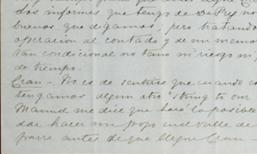 dos informes que tengo de DePrey no
buenos que digamos, pero tratando
operacion al contado y de un
tan condicional no tano mi riesgo ni
de tiempo.
Cran - No es de sentirse que cuando
tengamos algun otro "string to our
Manuel me dice que será imposible
dar hacer un pozo en el valle de
parra antes de que llegue Cran